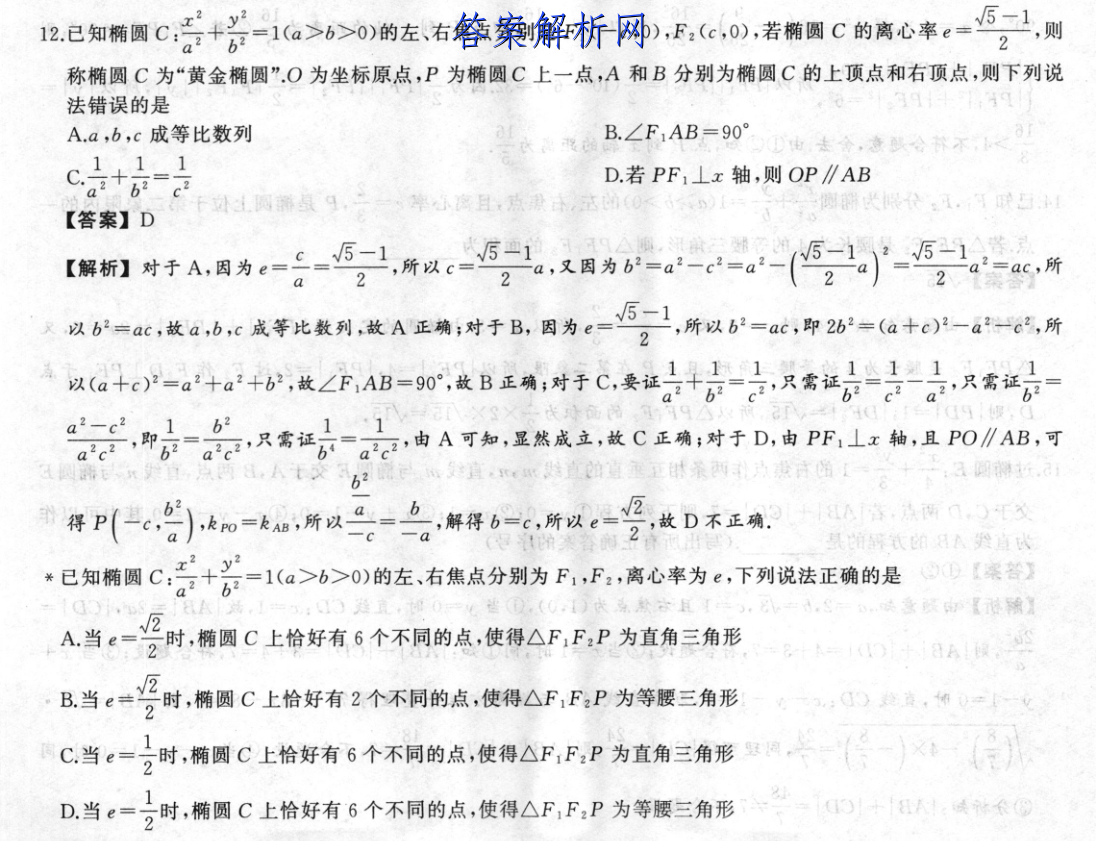 12.已知椭圆 C:x²/a²+y²/b²=1(a>b>0)的左、右焦点分别 F₂(c,0),若椭圆 C 的离心率 e=(√5-1)/2,则
答案解析网
称椭圆 C 为“黄金椭圆”.O 为坐标原点,P 为椭圆 C 上一点,A 和 B 分别为椭圆 C 的上顶点和右顶点,则下列说
法错误的是
A.a,b,c 成等比数列 B.∠F₁AB=90°
C.1/a²+1/b²=1/c² D.若 PF₁⊥x 轴,则 OP∥AB
【答案】D
【解析】对于 A,因为 e=c/a=(√5-1)/2,所以 c=(√5-1)/2 a,又因为 b²=a²-c²=a²-((√5-1)/2 a)²=(√5-1)/2 a²=ac,所
以 b²=ac,故 a,b,c 成等比数列,故 A 正确;对于 B,因为 e=(√5-1)/2,所以 b²=ac,即 2b²=(a+c)²-a²-c²,所
以(a+c)²=a²+a²+b²,故∠F₁AB=90°,故 B 正确;对于 C,要证1/a²+1/b²=1/c²,只需证1/b²=1/c²-1/a²,只需证1/b²=
(a²-c²)/(a²c²),即1/b²=b²/(a²c²),只需证1/b⁴=1/(a²c²),由 A 可知,显然成立,故 C 正确;对于 D,由 PF₁⊥x 轴,且 PO∥AB,可
得 P(-c,b²/a),k_PO=k_AB,所以(b²/a)/(-c)=b/(-a),解得 b=c,所以 e=√2/2,故 D 不正确.
*已知椭圆 C:x²/a²+y²/b²=1(a>b>0)的左、右焦点分别为 F₁,F₂,离心率为 e,下列说法正确的是
A.当 e=√2/2时,椭圆 C 上恰好有 6 个不同的点,使得△F₁F₂P 为直角三角形
B.当 e=√2/2时,椭圆 C 上恰好有 2 个不同的点,使得△F₁F₂P 为等腰三角形
C.当 e=1/2时,椭圆 C 上恰好有 6 个不同的点,使得△F₁F₂P 为直角三角形
D.当 e=1/2时,椭圆 C 上恰好有 6 个不同的点,使得△F₁F₂P 为等腰三角形